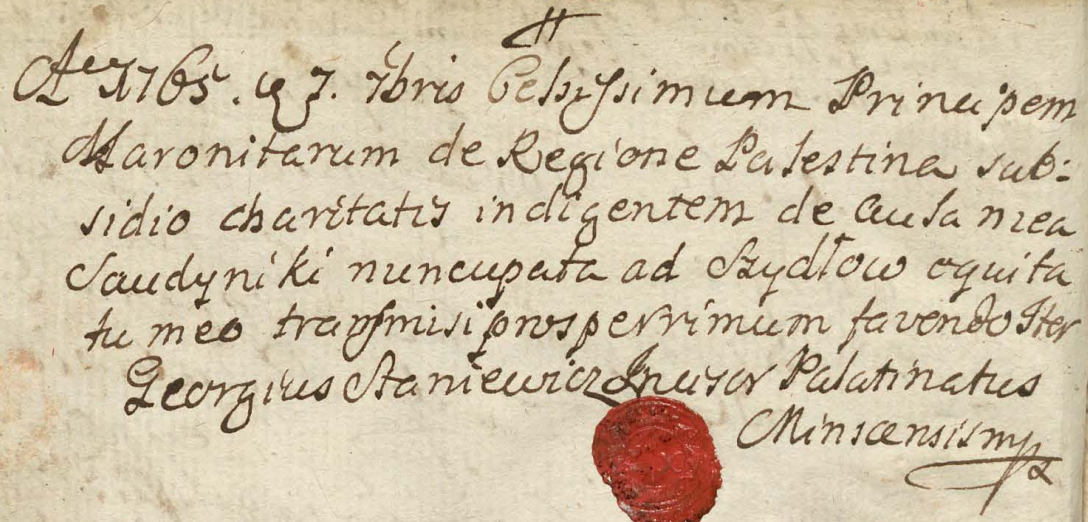 1765. 7. 7bris Celsissimum Principem
Maronitarum de Regione Palestina sub:
sidio charitatis indigentem de Caula mea
Saudyniki nuncupata ad Szydłow equita
tu meo transmisi prosperrimum favendo Iter
Georgius Staniewicz Palatinatus
Minscensis mp